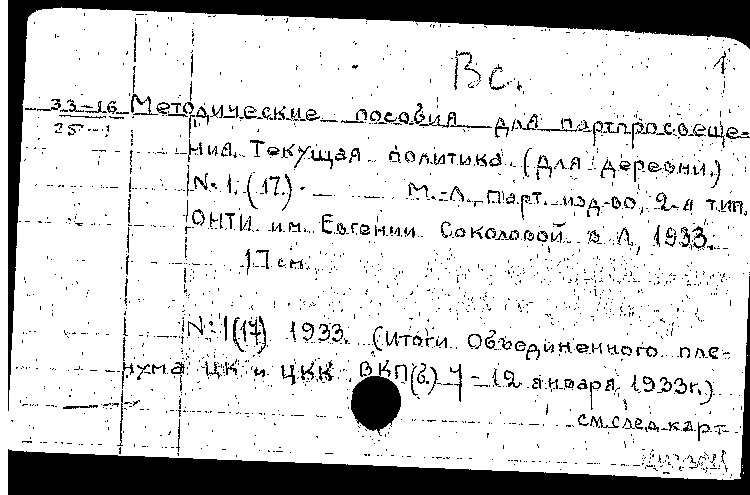 Вс. 1
33-16 Методические пособия для партпросвеще-
25-1
ния. Текущая политика. (Для деревни.)
N. 1. (17.) - М.-Л., Парт. изд-во, 2-я тип.
ОНТИ им. Евгении Соколовой в Л, 1933.
17 см.
N: 1(17) 1933. (Итоги Объединенного пле-
нума ЦК и ЦКК ВКП(б.) 7 - 12 января 1933г.)
см.след.карт